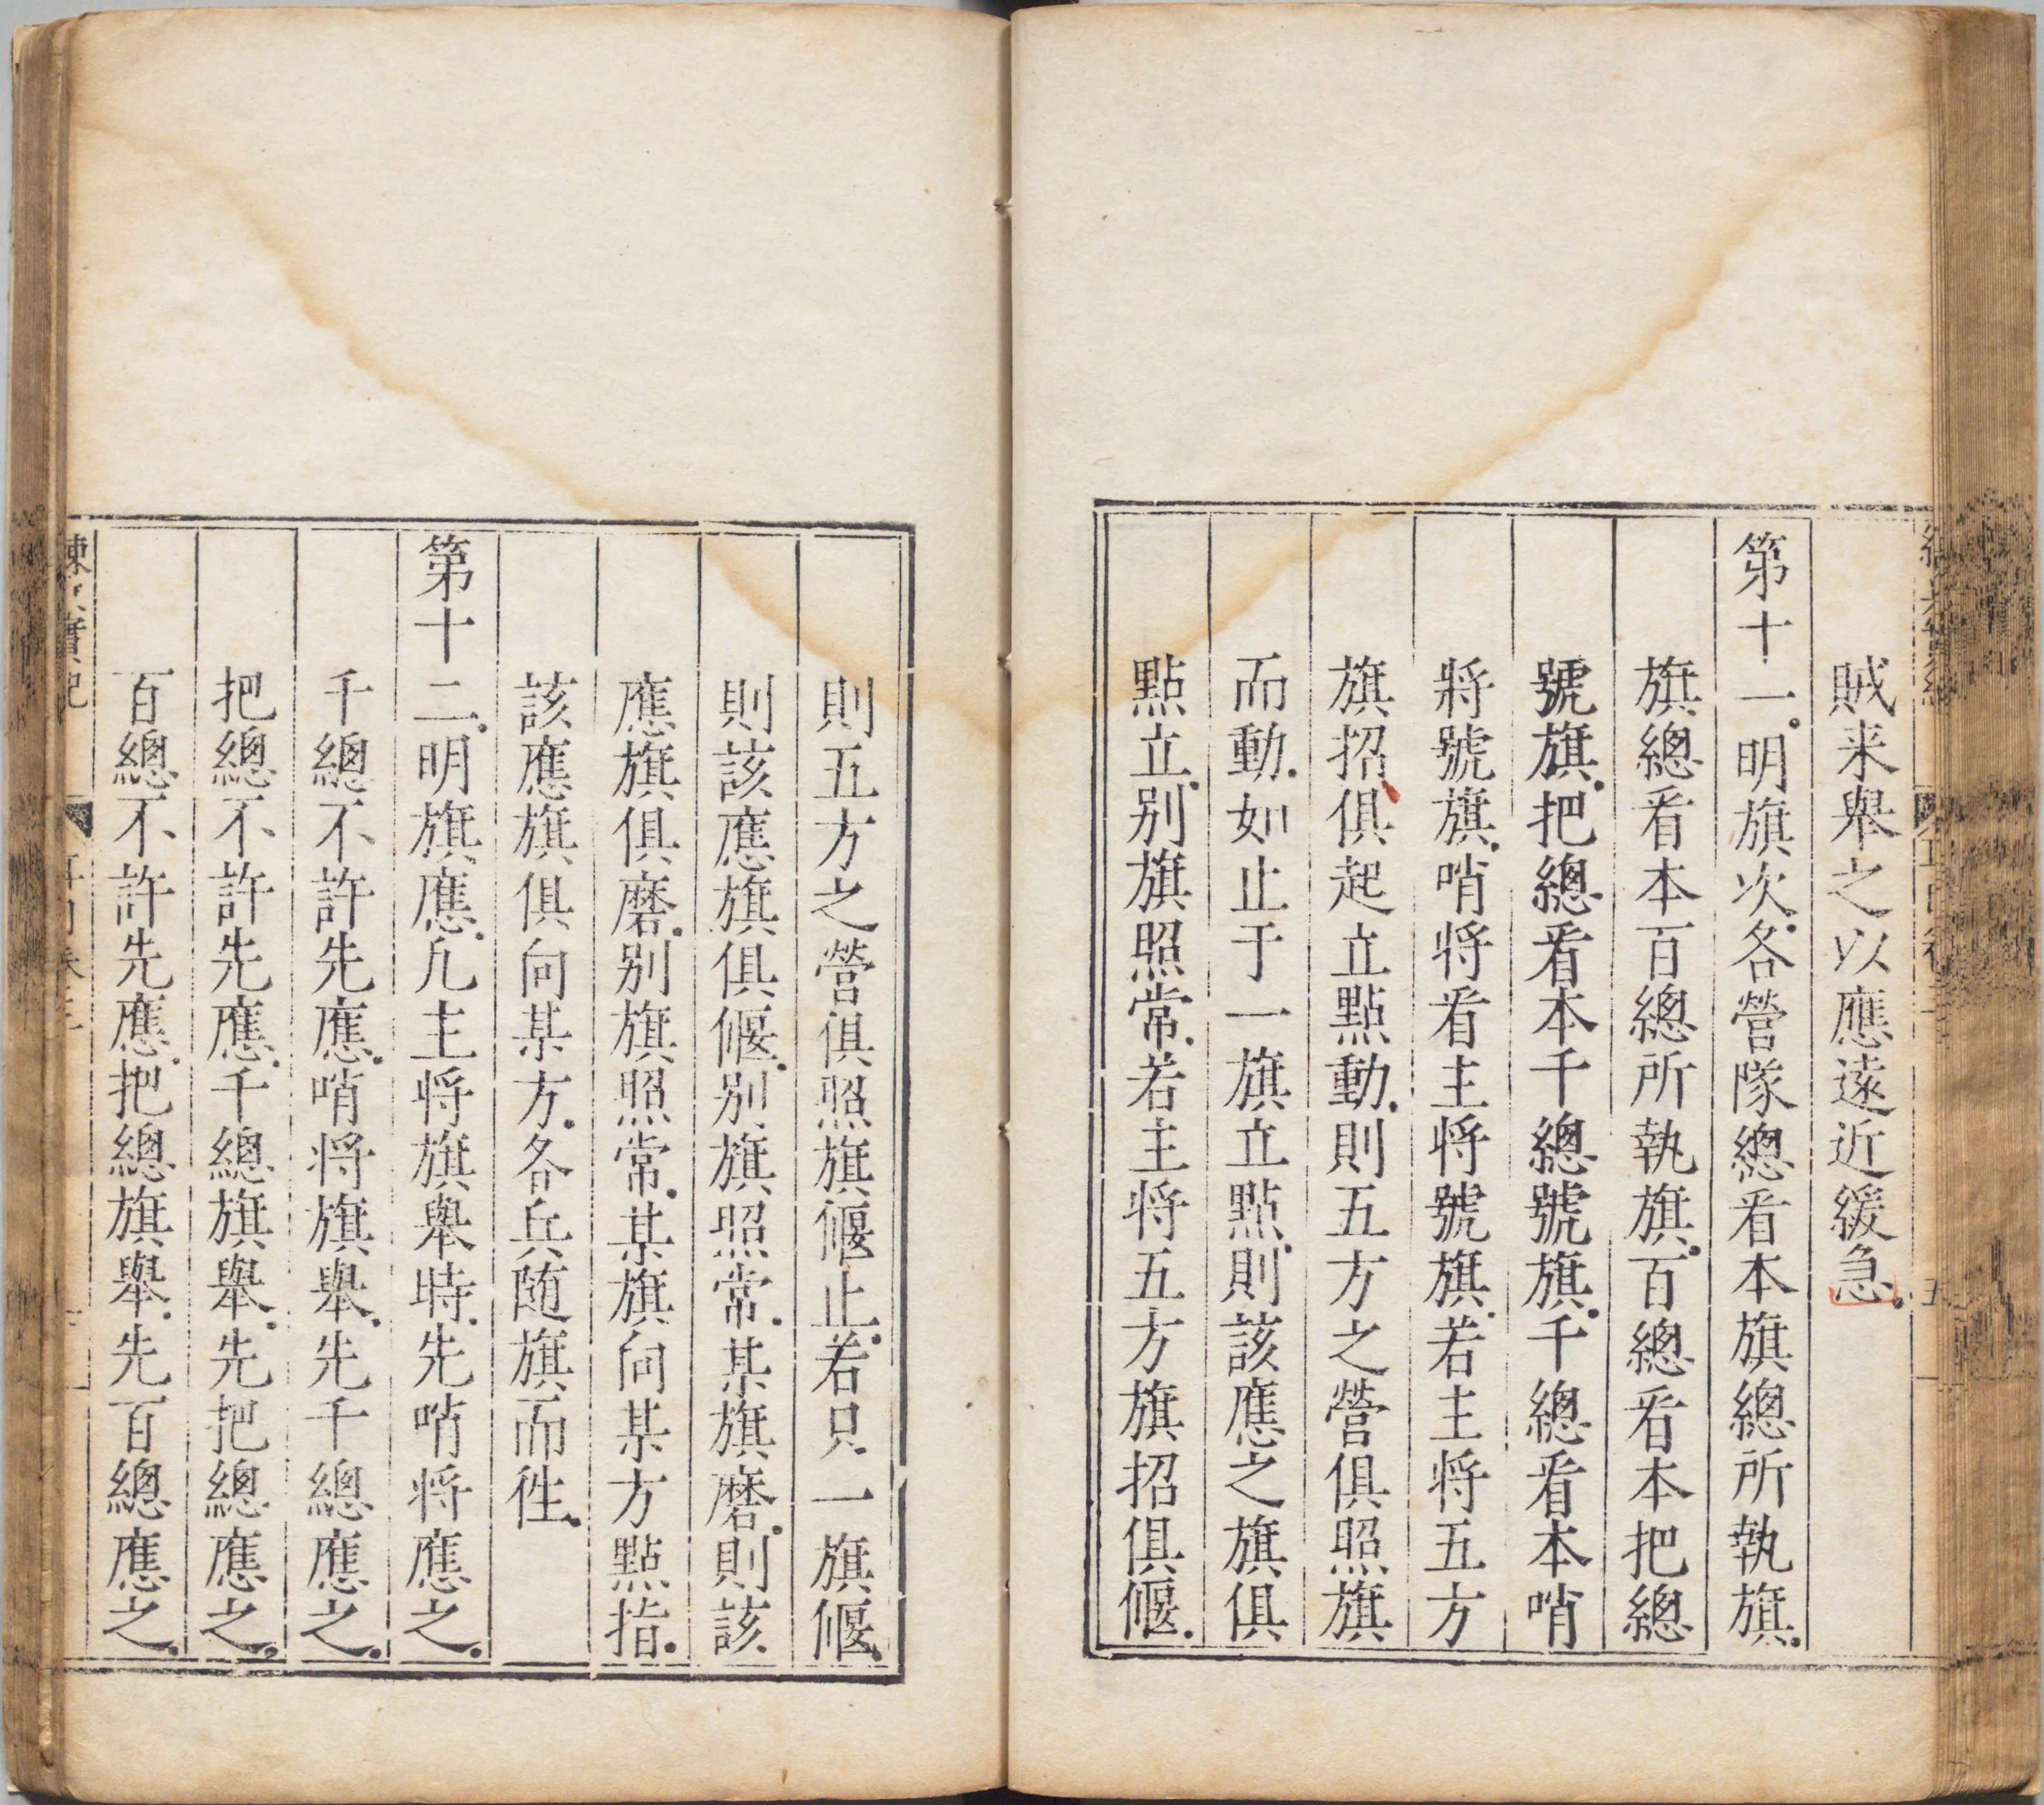 賊来舉之以應遠近緩急.
第十一.明旗次.各營隊總看本旗總所執旗.
旗總看本百總所執旗.百總看本把總
號旗.把總看本千總號旗.千總看本哨
將號旗.哨將看主將號旗.若主將五方
旗招俱起立點動.則五方之營俱照旗
而動.如止于一旗立點.則該應之旗俱
點立.别旗照常.若主将五方旗招俱偃.
則五方之營俱照旗偃止.若只一旗偃.
則該應旗俱偃.别旗照常.某旗磨.則該
應旗俱磨.别旗照常.某旗向某方點指.
該應旗俱向某方.各兵随旗而徃.
第十二.明旗應.凢主将旗舉時.先哨将應之.
千總不許先應.哨将旗舉.先千總應之.
把總不許先應.千總旗舉.先把總應之.
百總不許先應.把總旗舉.先百總應之.